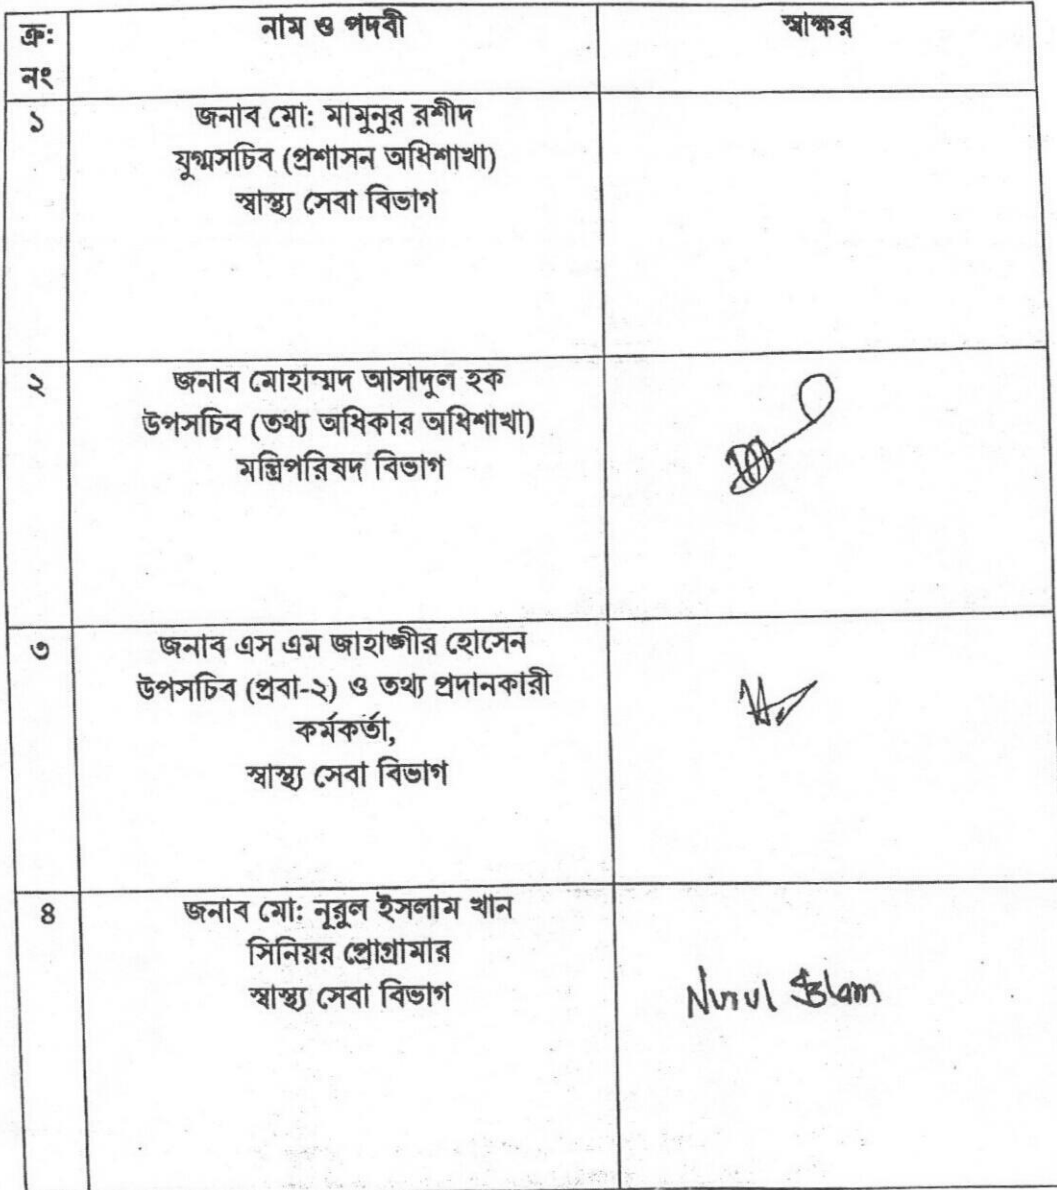 ক্র: নাম ও পদবী স্বাক্ষর
নং
১ জনাব মো: মামুনুর রশীদ
যুগ্মসচিব (প্রশাসন অধিশাখা)
স্বাস্থ্য সেবা বিভাগ
২ জনাব মোহাম্মদ আসাদুল হক
উপসচিব (তথ্য অধিকার অধিশাখা)
মন্ত্রিপরিষদ বিভাগ
৩ জনাব এস এম জাহাঙ্গীর হোসেন
উপসচিব (প্রবা-২) ও তথ্য প্রদানকারী
কর্মকর্তা,
স্বাস্থ্য সেবা বিভাগ
৪ জনাব মো: নূরুল ইসলাম খান
সিনিয়র প্রোগ্রামার
স্বাস্থ্য সেবা বিভাগ
Nurul Islam